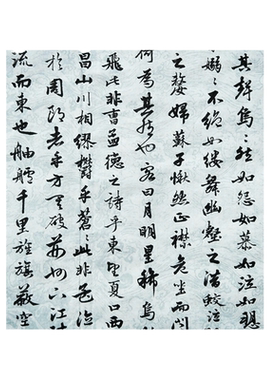 其聲嗚〻然如怨如慕如泣如訴
嫋〻不絕如縷舞幽壑之潛蛟泣
之嫠婦蘇子愀然正襟危坐而問
何為其然也客曰月明星稀烏
飛此非曹孟德之詩乎東望夏口西
昌山川相繆鬱乎蒼〻此非孟德
於周郎者乎方其破荊州下江陵
流而東也舳艫千里旌旗蔽空